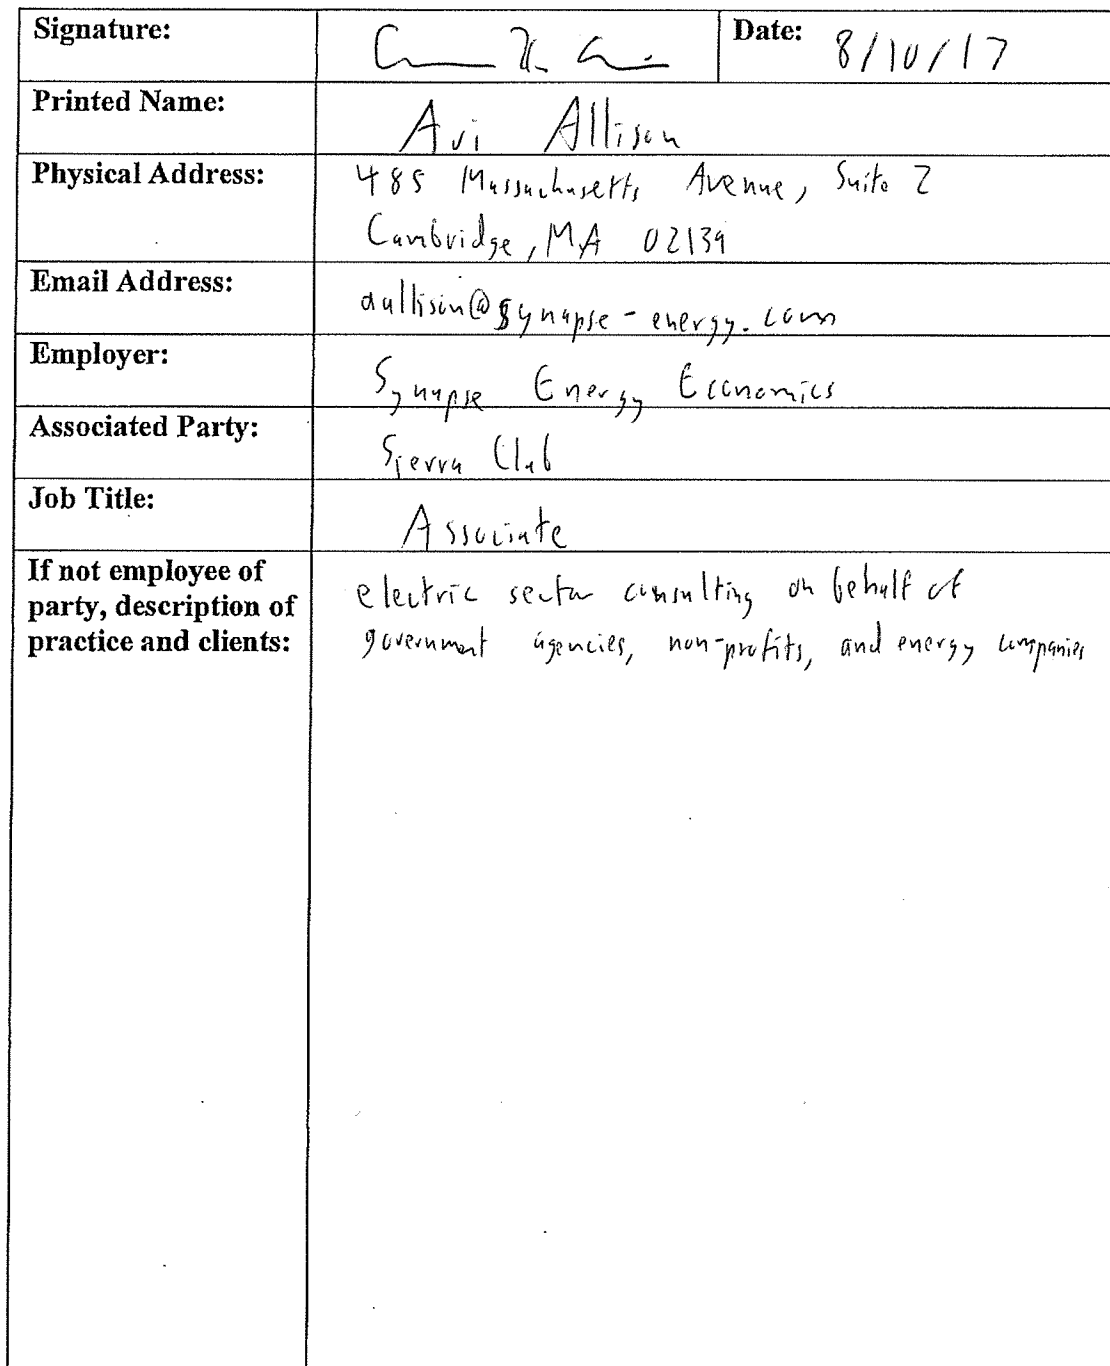 Signature:
Date: 8/10/17
Printed Name: Avi Allison
Physical Address: 485 Massachusetts Avenue, Suite 2
Cambridge, MA 02139
Email Address: aallison@synapse-energy.com
Employer: Synapse Energy Economics
Associated Party: Sierra Club
Job Title: Associate
If not employee of party, description of practice and clients:
electric sector consulting on behalf of
government agencies, non-profits, and energy companies